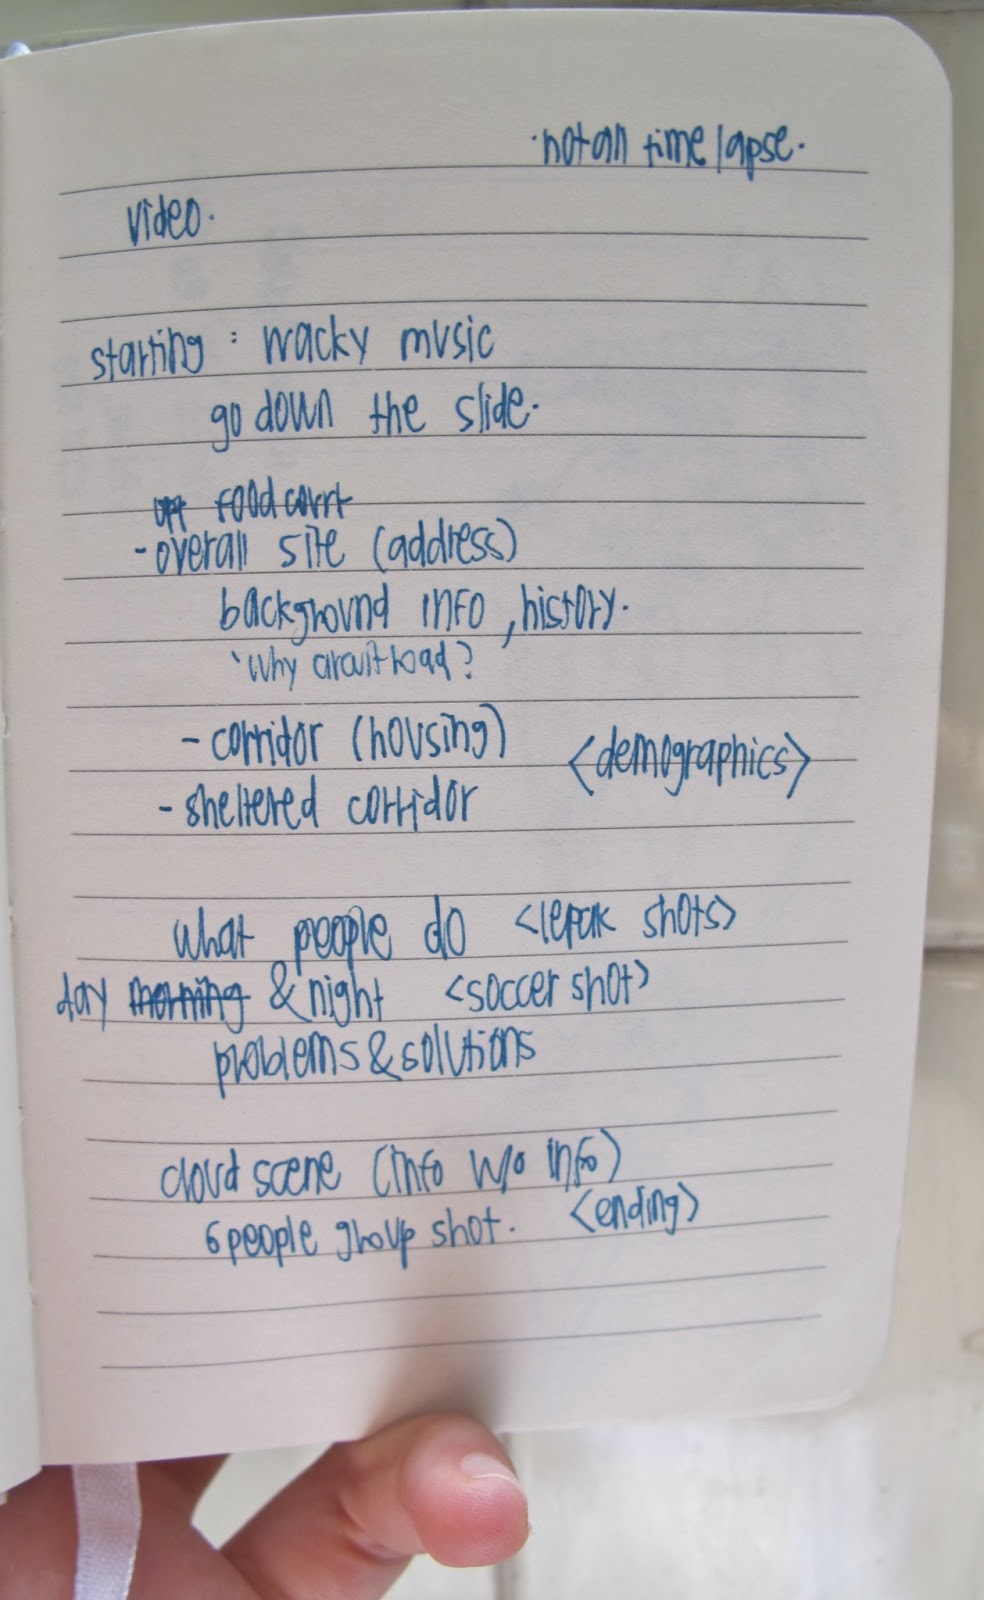 ·not all time lapse.
video.
starting : wacky music
go down the slide.
food court
- overall site (address)
background info, history.
'Why circuit road?
- corridor (housing) <demographics>
- sheltered corridor
what people do <lepak shots>
day morning & night <soccer shot>
problems & solutions
cloud scene (info w/o info)
6 people group shot. <ending>